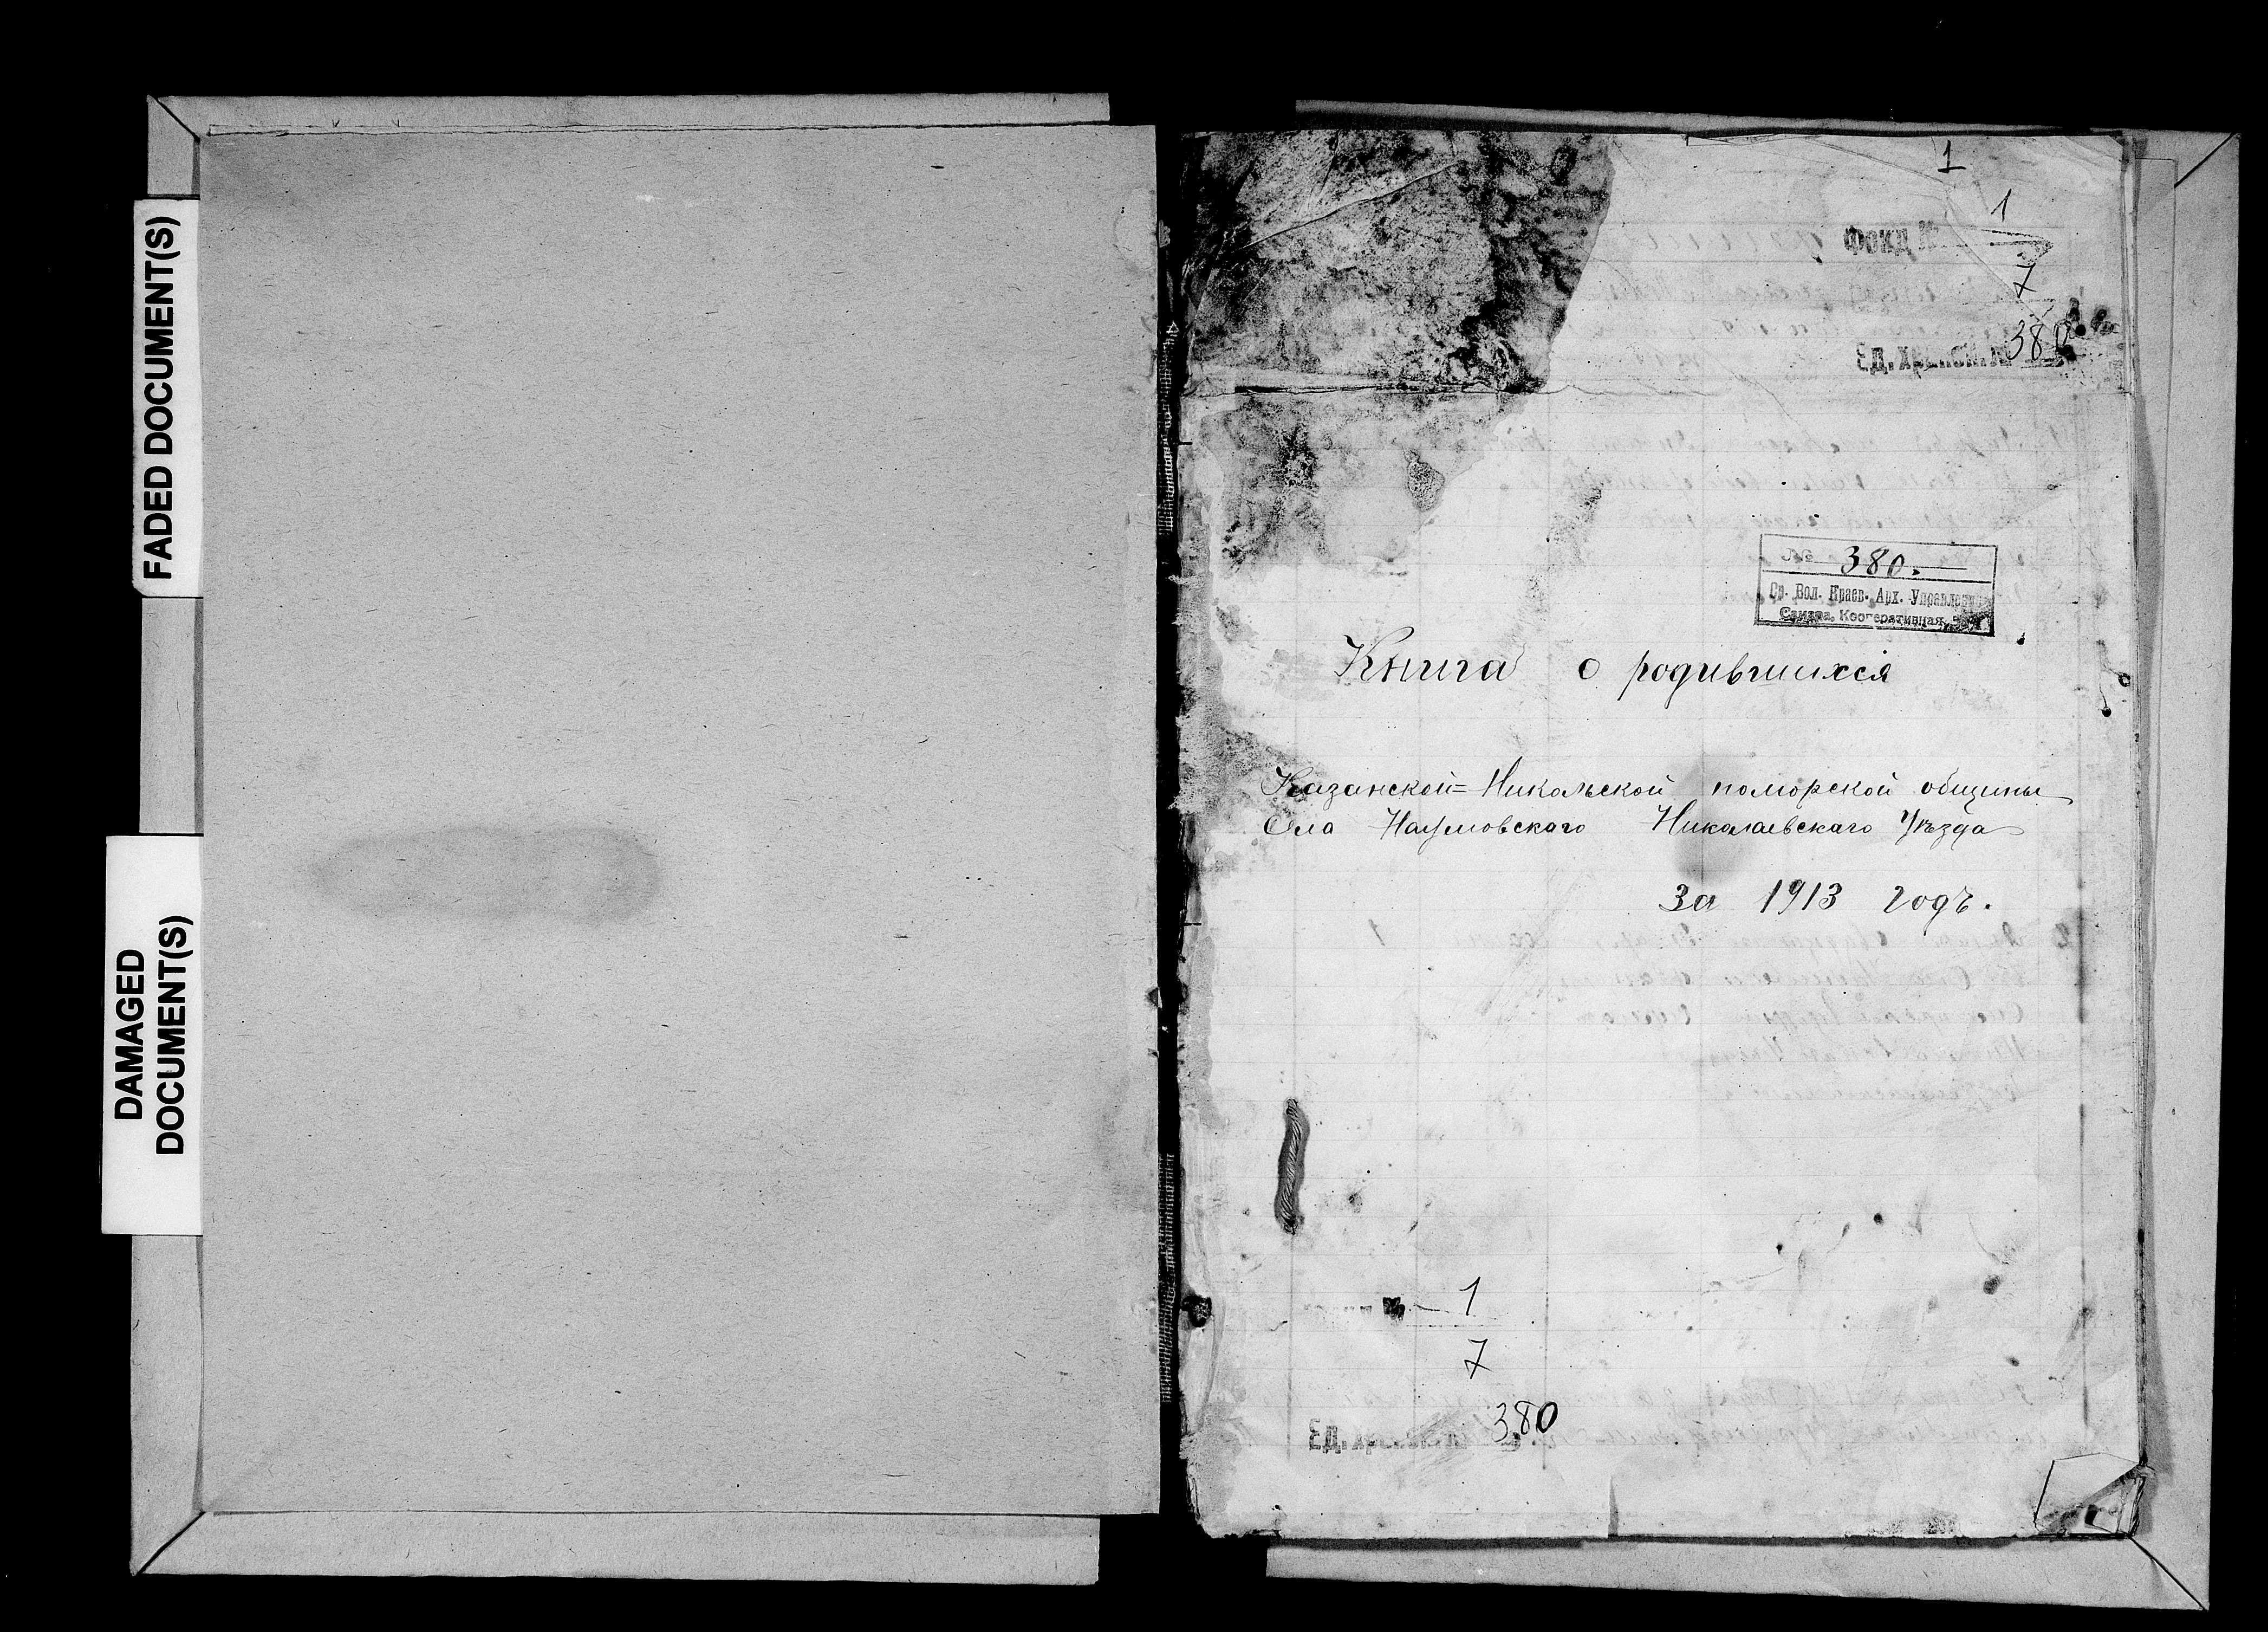 FADED DOCUMENT(S)
DAMAGED
DOCUMENT(S)
1
1
Фонд №
7
380
Ед. хранен. №
№ 380.
Ср. Вол. Краев. Арх. Управление
Самара, Кооперативная,
Книга о родившихся
Казанской=Никольской поморской общины
Села Наумовскаго Николаевскаго Уѣзда
За 1913 годъ.
№ 1
7
380